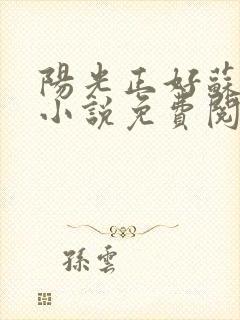 陽光正好蘇
小說免費閱
孫雲